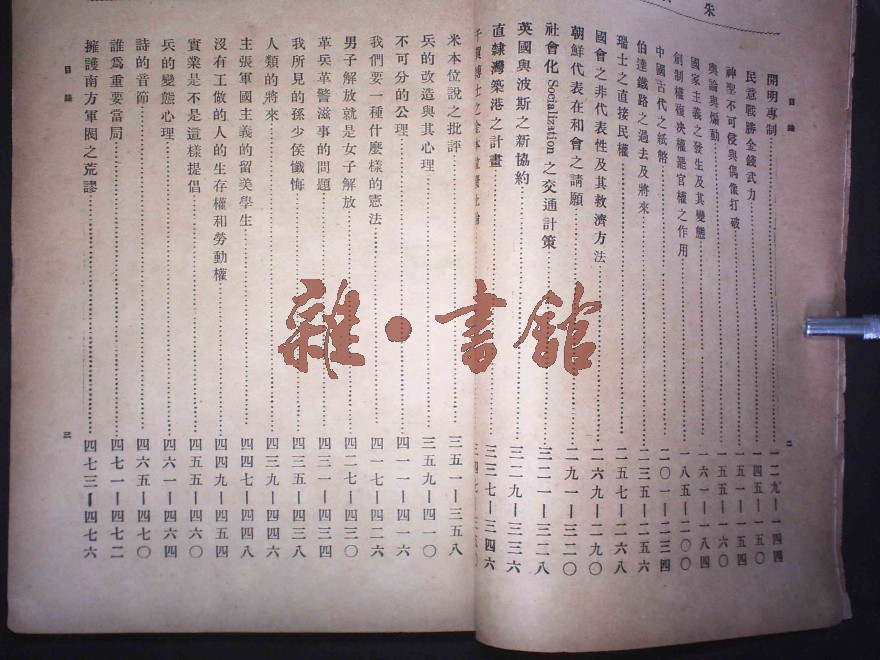 朱
目錄
開明專制⋯⋯一二九—一四四
民意戰勝金錢武力⋯⋯一四五—一五〇
神聖不可侵與偶像打破⋯⋯一五一—一五四
輿論與煽動⋯⋯一五五—一六〇
國家主義之發生及其變態⋯⋯一六一—一八四
創制權複决權罷官權之作用⋯⋯一八五—二〇〇
中國古代之紙幣⋯⋯二〇一—二三四
伯達鐵路之過去及將來⋯⋯二三五—二五六
瑞士之直接民權⋯⋯二五七—二六八
國會之非代表性及其救濟方法⋯⋯二六九—二九〇
朝鮮代表在和會之請願⋯⋯二九一—三二〇
社會化 Socialization 之交通計策⋯⋯三二一—三二八
英國與波斯之新協約⋯⋯三二九—三三六
直隸灣築港之計畫⋯⋯三三七—三四六
二
米本位說之批評⋯⋯三五一—三五八
兵的改造與其心理⋯⋯三五九—四一〇
不可分的公理⋯⋯四一一—四一六
我們要一種什麼樣的憲法⋯⋯四一七—四二六
男子解放就是女子解放⋯⋯四二七—四三〇
革兵革警滋事的問題⋯⋯四三一—四三四
我所見的孫少侯懺悔⋯⋯四三五—四三八
人類的將來⋯⋯四三九—四四六
主張軍國主義的留美學生⋯⋯四四七—四四八
沒有工做的人的生存權和勞動權⋯⋯四四九—四五四
實業是不是這樣提倡⋯⋯四五五—四六〇
兵的變態心理⋯⋯四六一—四六四
詩的音節⋯⋯四六五—四七〇
誰爲重要當局⋯⋯四七一—四七二
擁護南方軍閥之荒謬⋯⋯四七三—四七六
目錄
三
雜·書館